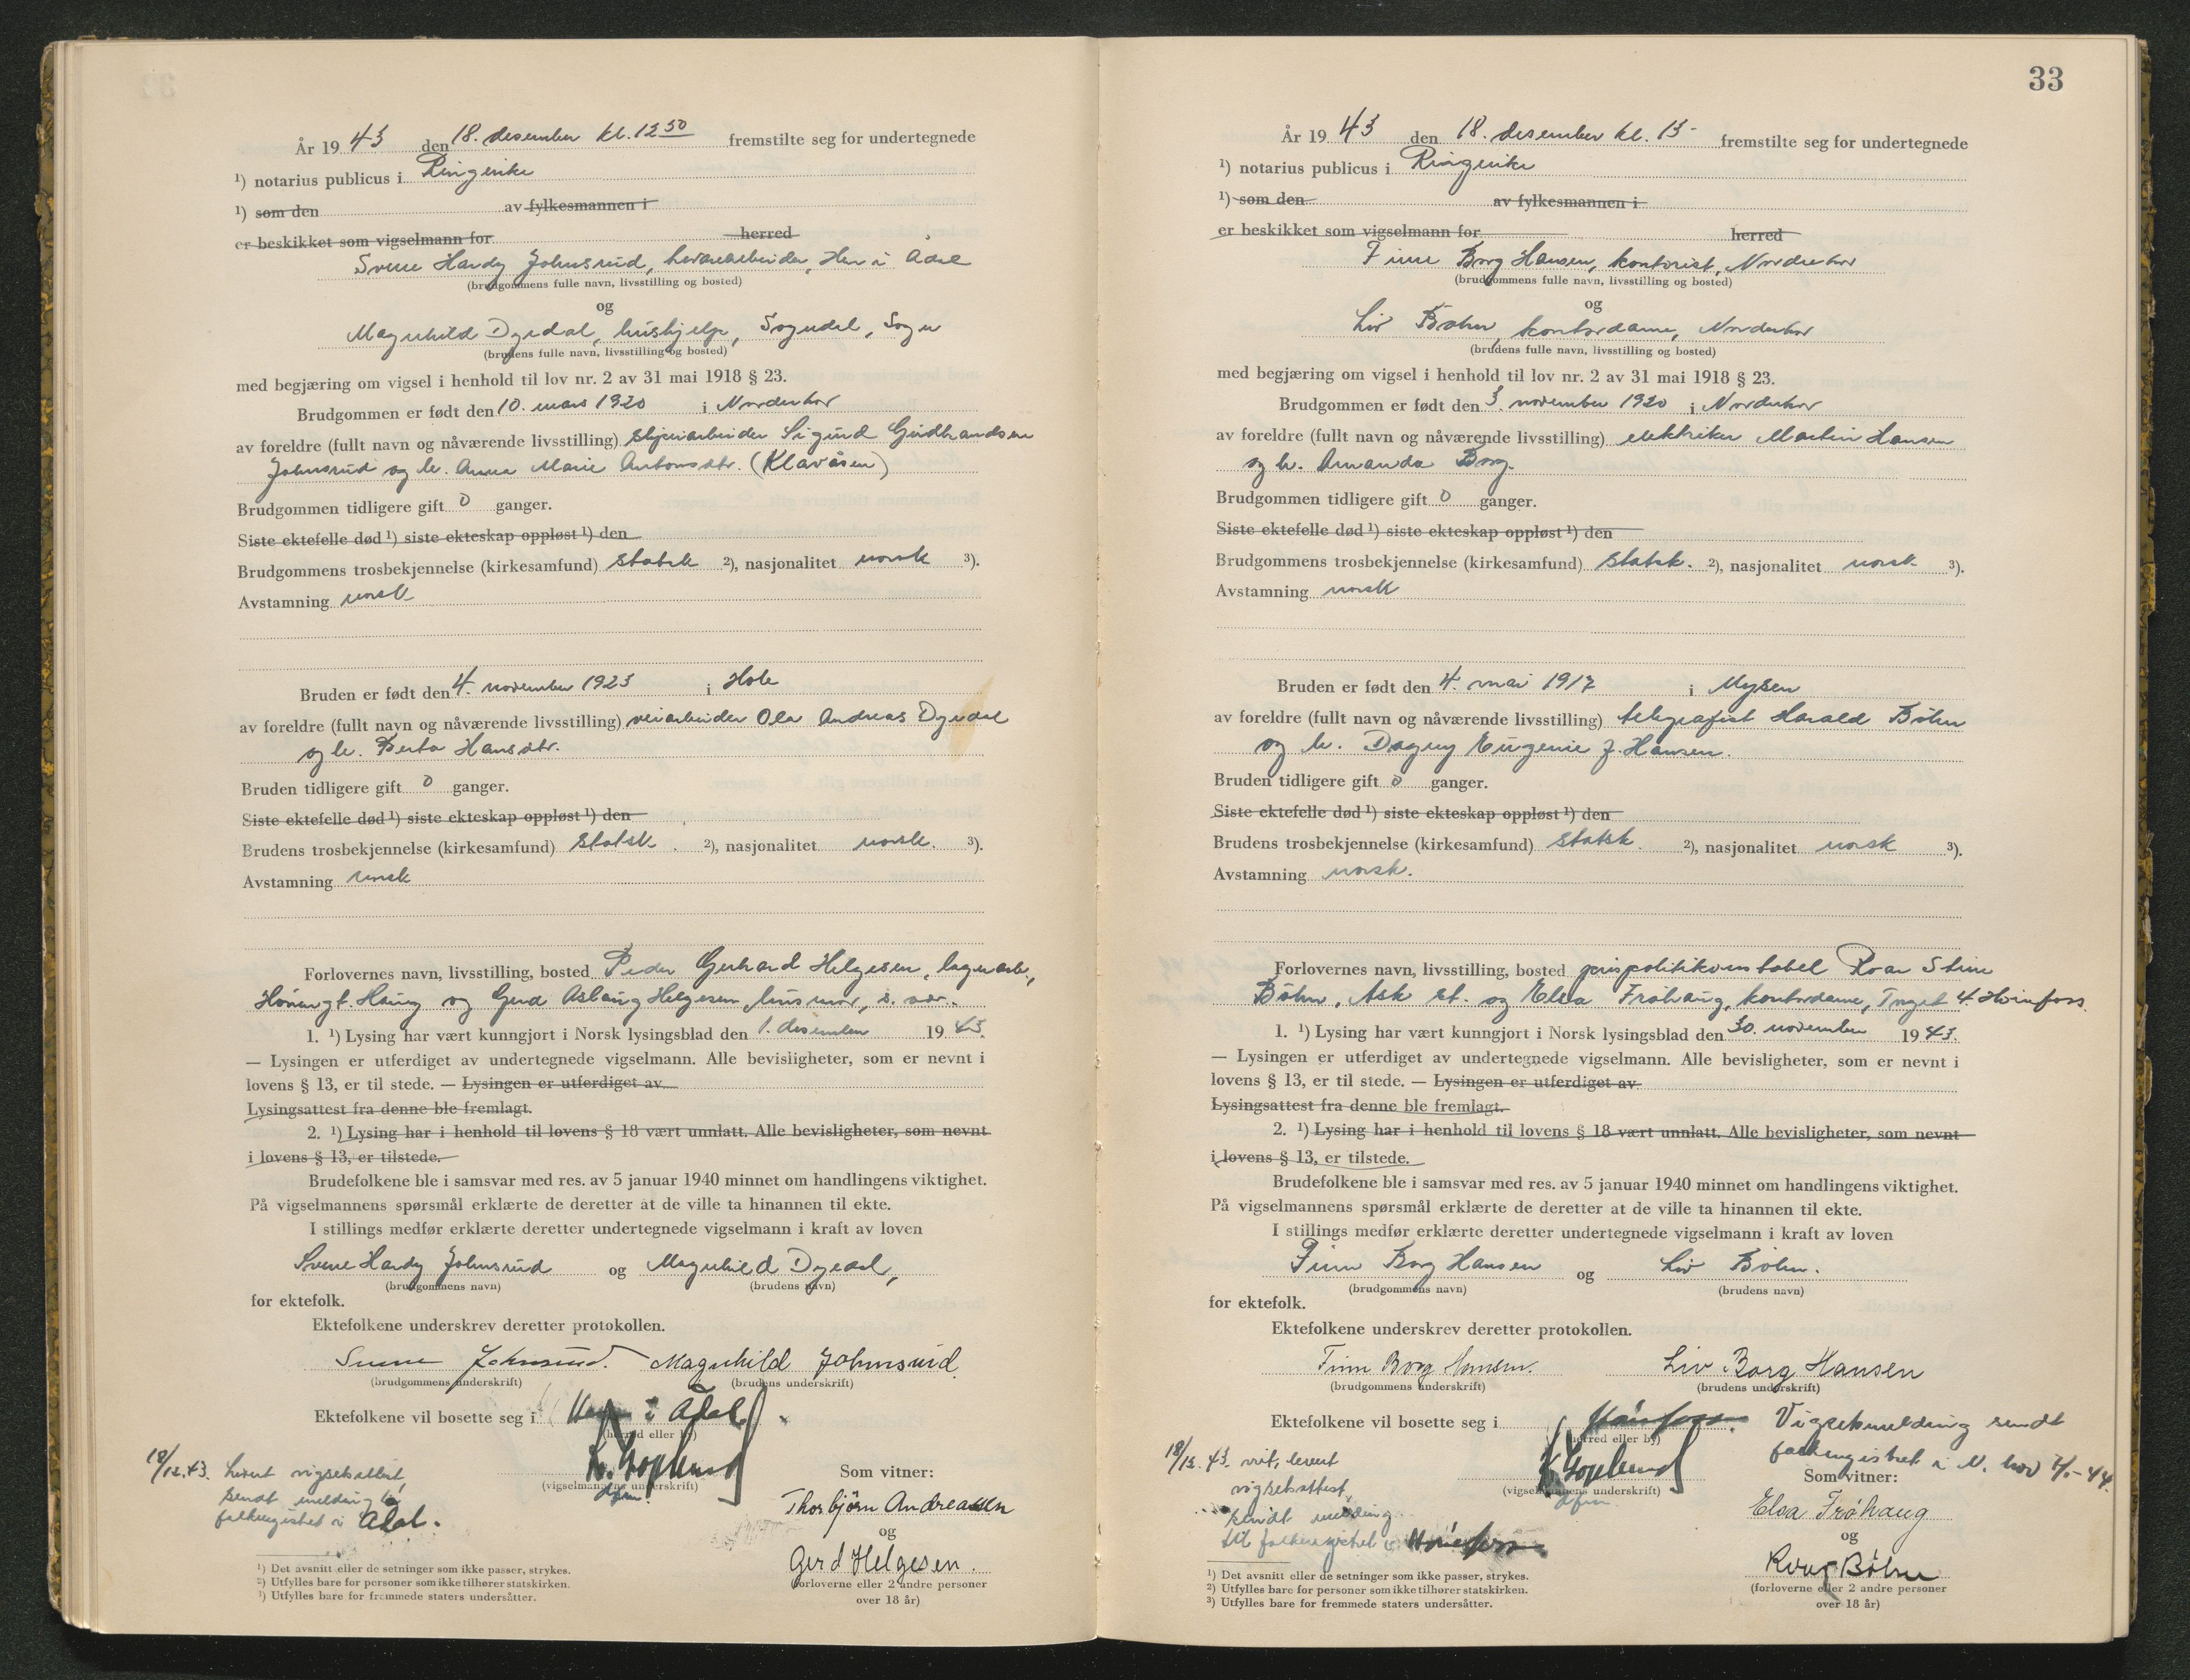 År 19 43 den 18. desember kl. 12 50 fremstilte seg for undertegnede
¹) notarius publicus i Ringerike
¹) som den av fylkesmannen i
er beskikket som vigselmann for herred
Sverre Hardy Johnsrud, Hen i Ådal
(brudgommens fulle navn, livsstilling og bosted)
og
Magnhild Dyrdal, hushjelp, Sogndal, Sogn
(brudens fulle navn, livsstilling og bosted)
med begjæring om vigsel i henhold til lov nr. 2 av 31 mai 1918 § 23.
Brudgommen er født den 10. mars 1920 i Norderhov
av foreldre (fullt navn og nåværende livsstilling) sliperiarbeider Sigurd Gudbrandsen
Johnsrud og h. Anna Marie Antonsdtr. (Klavåsen)
Brudgommen tidligere gift 0 ganger.
Siste ektefelle død ¹) siste ekteskap oppløst ¹) den
Brudgommens trosbekjennelse (kirkesamfund) statsk ²), nasjonalitet norsk ³).
Avstamning norsk
Bruden er født den 4. november 1923 i Hole
av foreldre (fullt navn og nåværende livsstilling) veiarbeider Ola Andreas Dyrdal
og h. Berta Hansdtr.
Bruden tidligere gift 0 ganger.
Siste ektefelle død ¹) siste ekteskap oppløst ¹) den
Brudens trosbekjennelse (kirkesamfund) statsk. ²), nasjonalitet norsk. ³).
Avstamning norsk
Forlovernes navn, livsstilling, bosted Peder Gerhard Helgesen, lagerarb.,
Hønengt. Haug og Gerd Aslaug Helgesen husmor, s.
1. ¹) Lysing har vært kunngjort i Norsk lysingsblad den 1. desember 19 43.
— Lysingen er utferdiget av undertegnede vigselmann. Alle bevisligheter, som er nevnt i
lovens § 13, er til stede. — Lysingen er utferdiget av
Lysingsattest fra denne ble fremlagt.
2. ¹) Lysing har i henhold til lovens § 18 vært unnlatt. Alle bevisligheter, som nevnt
i lovens § 13, er tilstede.
Brudefolkene ble i samsvar med res. av 5 januar 1940 minnet om handlingens viktighet.
På vigselmannens spørsmål erklærte de deretter at de ville ta hinannen til ekte.
I stillings medfør erklærte deretter undertegnede vigselmann i kraft av loven
Sverre Hardy Johnsrud og Magnhild Dyrdal,
(brudgommens navn) (brudens navn)
for ektefolk.
Ektefolkene underskrev deretter protokollen.
Sverre Johnsrud. Magnhild Johnsrud.
(brudgommens underskrift) (brudens underskrift)
Ektefolkene vil bosette seg i Hen i Ådal
(herred eller by)
(vigselmannens underskrift)
dfm.
18/12.43. Levert vigselsattest
sendt melding til
folkeregistret i Ådal.
Som vitner:
Thorbjørn Andreassen
og
Gerd Helgesen.
(forloverne eller 2 andre personer
over 18 år)
¹) Det avsnitt eller de setninger som ikke passer, strykes.
²) Utfylles bare for personer som ikke tilhører statskirken.
³) Utfylles bare for fremmede staters undersåtter.
33
År 19 43 den 18. desember kl. 13- fremstilte seg for undertegnede
¹) notarius publicus i Ringerike
¹) som den av fylkesmannen i
er beskikket som vigselmann for herred
Finn Borg Hansen, kontorist, Norderhov
(brudgommens fulle navn, livsstilling og bosted)
og
Liv Bøhn, kontordame, Norderhov
(brudens fulle navn, livsstilling og bosted)
med begjæring om vigsel i henhold til lov nr. 2 av 31 mai 1918 § 23.
Brudgommen er født den 3. november 1920 i Norderhov
av foreldre (fullt navn og nåværende livsstilling) elektriker Martin Hansen
og h. Amanda Borg.
Brudgommen tidligere gift 0 ganger.
Siste ektefelle død ¹) siste ekteskap oppløst ¹) den
Brudgommens trosbekjennelse (kirkesamfund) statsk. ²), nasjonalitet norsk. ³).
Avstamning norsk
Bruden er født den 4. mai 1917 i Mysen
av foreldre (fullt navn og nåværende livsstilling) telegrafist Harald Bøhn
og h. Dagny Eugenie J. Hansen.
Bruden tidligere gift 0 ganger.
Siste ektefelle død ¹) siste ekteskap oppløst ¹) den
Brudens trosbekjennelse (kirkesamfund) statsk. ²), nasjonalitet norsk ³).
Avstamning norsk.
Forlovernes navn, livsstilling, bosted prispolitikonstabel Roar Stine
Bøhn, Ask st. og Elsa Frøhaug, kontordame, 4 Hønefoss
1. ¹) Lysing har vært kunngjort i Norsk lysingsblad den 30. november 19 43.
— Lysingen er utferdiget av undertegnede vigselmann. Alle bevisligheter, som er nevnt i
lovens § 13, er til stede. — Lysingen er utferdiget av
Lysingsattest fra denne ble fremlagt.
2. ¹) Lysing har i henhold til lovens § 18 vært unnlatt. Alle bevisligheter, som nevnt
i lovens § 13, er tilstede.
Brudefolkene ble i samsvar med res. av 5 januar 1940 minnet om handlingens viktighet.
På vigselmannens spørsmål erklærte de deretter at de ville ta hinannen til ekte.
I stillings medfør erklærte deretter undertegnede vigselmann i kraft av loven
Finn Borg Hansen og Liv Bøhn.
(brudgommens navn) (brudens navn)
for ektefolk.
Ektefolkene underskrev deretter protokollen.
Finn Borg Hansen. Liv Borg Hansen
(brudgommens underskrift) (brudens underskrift)
Ektefolkene vil bosette seg i Hønefoss. Vigselsmelding sendt
(herred eller by) folkeregistret i N. hov
(vigselmannens underskrift)
dfm
18/12.43. levert
vigselsattest,
sendt melding
til folkeregistret i Hønefoss
Som vitner:
Elsa Frøhaug
og
Roar Bøhn
(forloverne eller 2 andre personer
over 18 år)
¹) Det avsnitt eller de setninger som ikke passer, strykes.
²) Utfylles bare for personer som ikke tilhører statskirken.
³) Utfylles bare for fremmede staters undersåtter.